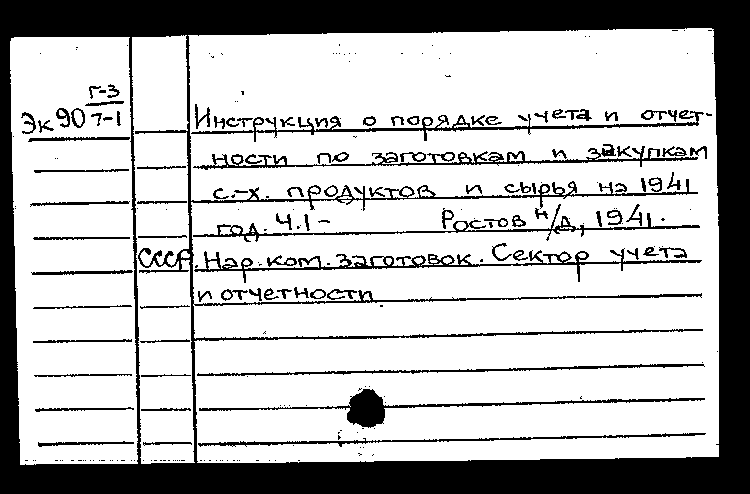 Г-3
Эк90 7-1
Инструкция о порядке учета и отчет-
ности по заготовкам и закупкам
с.-х. продуктов и сырья на 1941
год. Ч.1- Ростов н/Д, 1941.
СССР. Нар. ком. заготовок. Сектор учета
и отчетности